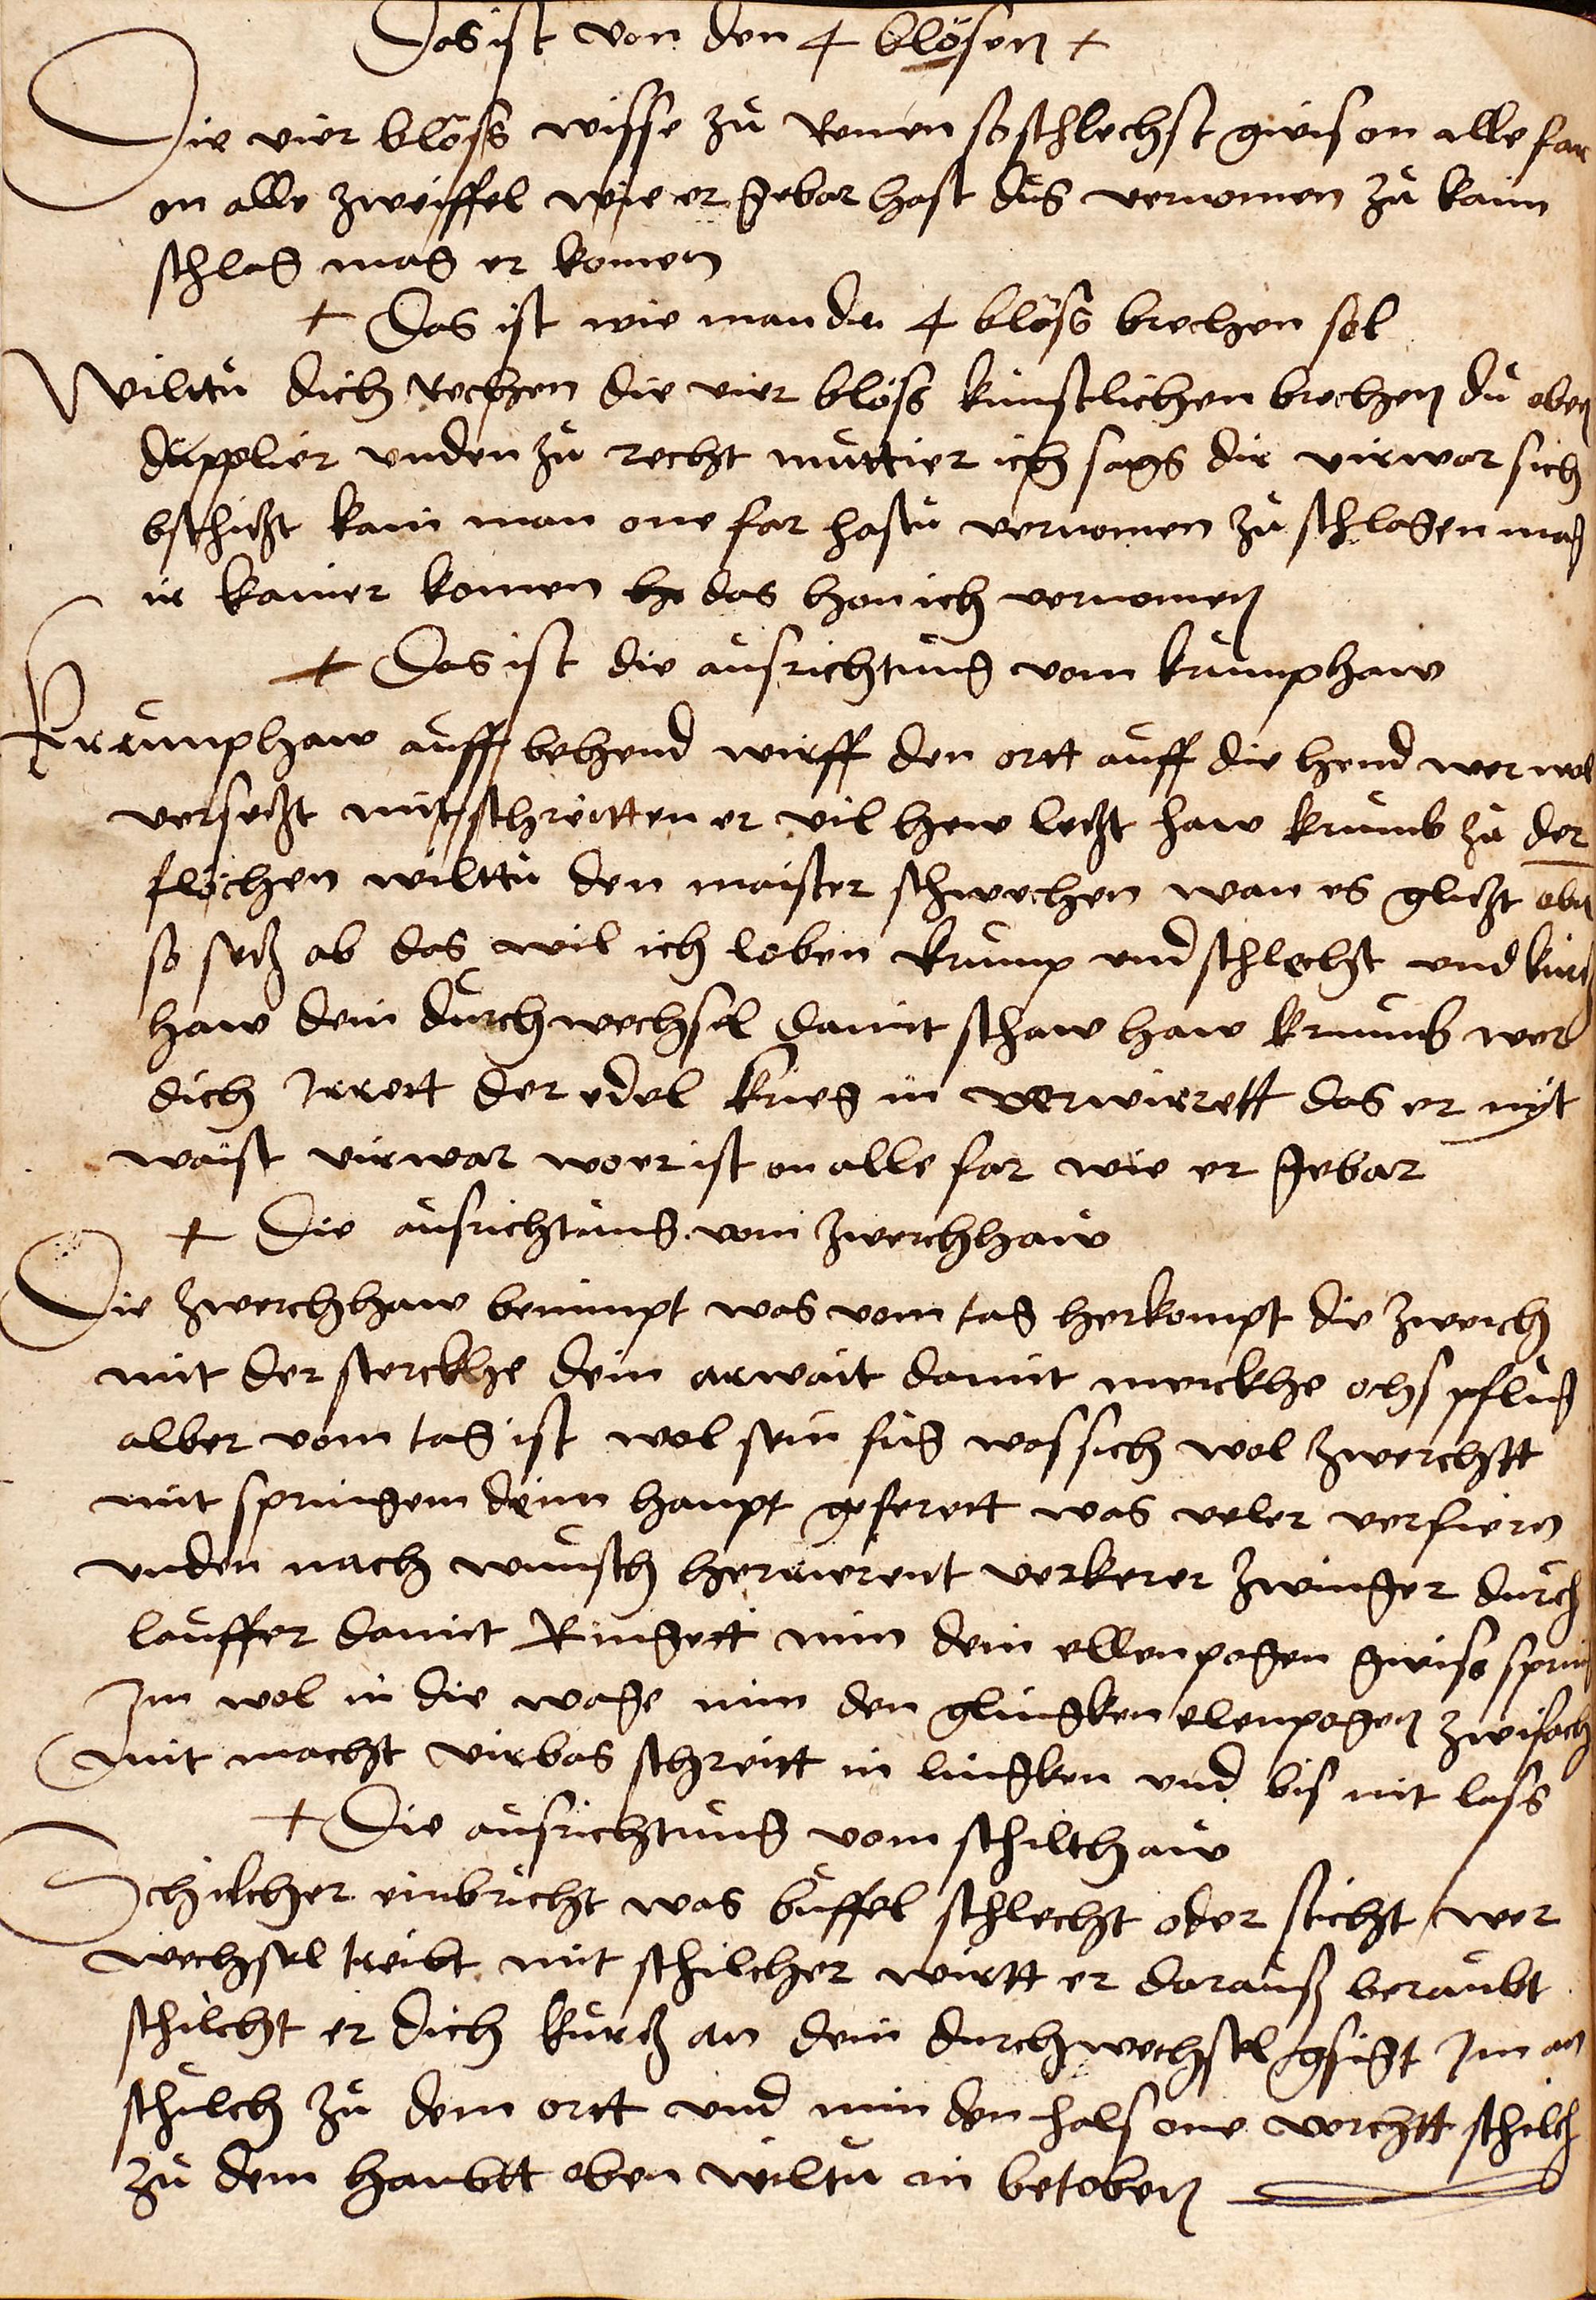 Das ist von den 4 blösen +
Die vier blöss wisse zů Remen so schlechst gwis on alle far
on alle zweiffel wie er gebar hast dus vernomen zů kaim
schlag mag er komen
+ Das ist wie man die 4 blöss brechen sol
Wilttu dich Rechen die vier blöss künstlichen brechen du oben
dupplier unden zů recht muttier ich sags dir virwar sich
bschiczt kain man one far hastu vernomen zů schlagen mag
ir kainer komen das hon ich vernomen
+ Das ist die ausrichtung vom krumphaw
Krrumphaw auff behend wirff den ortt auff die hend wer wol
verseczt mit schreitten er vil hew leczt haw krumb zů der
flechen wilttu den maister schwechen wan es gliczt oben
so secz ab das wil ich loben krump und schlechst und kurcz
haw dein durchwechsel damit schaw haw krumb wer
dich Irrett der edel krieg in verwirrett das er nyt
waist virwar wo er ist on alle far wie er gebar
+ Die ausrichtung vom zwerchhaw
Die zwerchhaw benimpt was vom tag herkompt die zwerch
mit der sterckhe dein arwait damit merckhe ochs pflug
alber vom tag ist wol sein fug was sich wol zwerchtt
mit springem deim haupt geferett was veler verfieren
unden nach wunsch herruerent verkerer zwinger durch
lauffer damit Ringett nim dein ellenpogen gwiss spring
Im wol in die wage nim den glingken elenpogen zwifach
mit macht virbas schreitt in lingken und bis nit lass
+ Die ausrichtung vom schilthaw
Schilcher einbricht was buffel schlecht oder sticht wer
wechsel treibt mit schilcher wirtt er darauss beraubt
schilcht er dich kurcz an dein durchwechsel gsigt Im an
schilch zů dem ortt und nim den hals one vorchtt schilch
zů dem haubtt oben wiltu in betoben